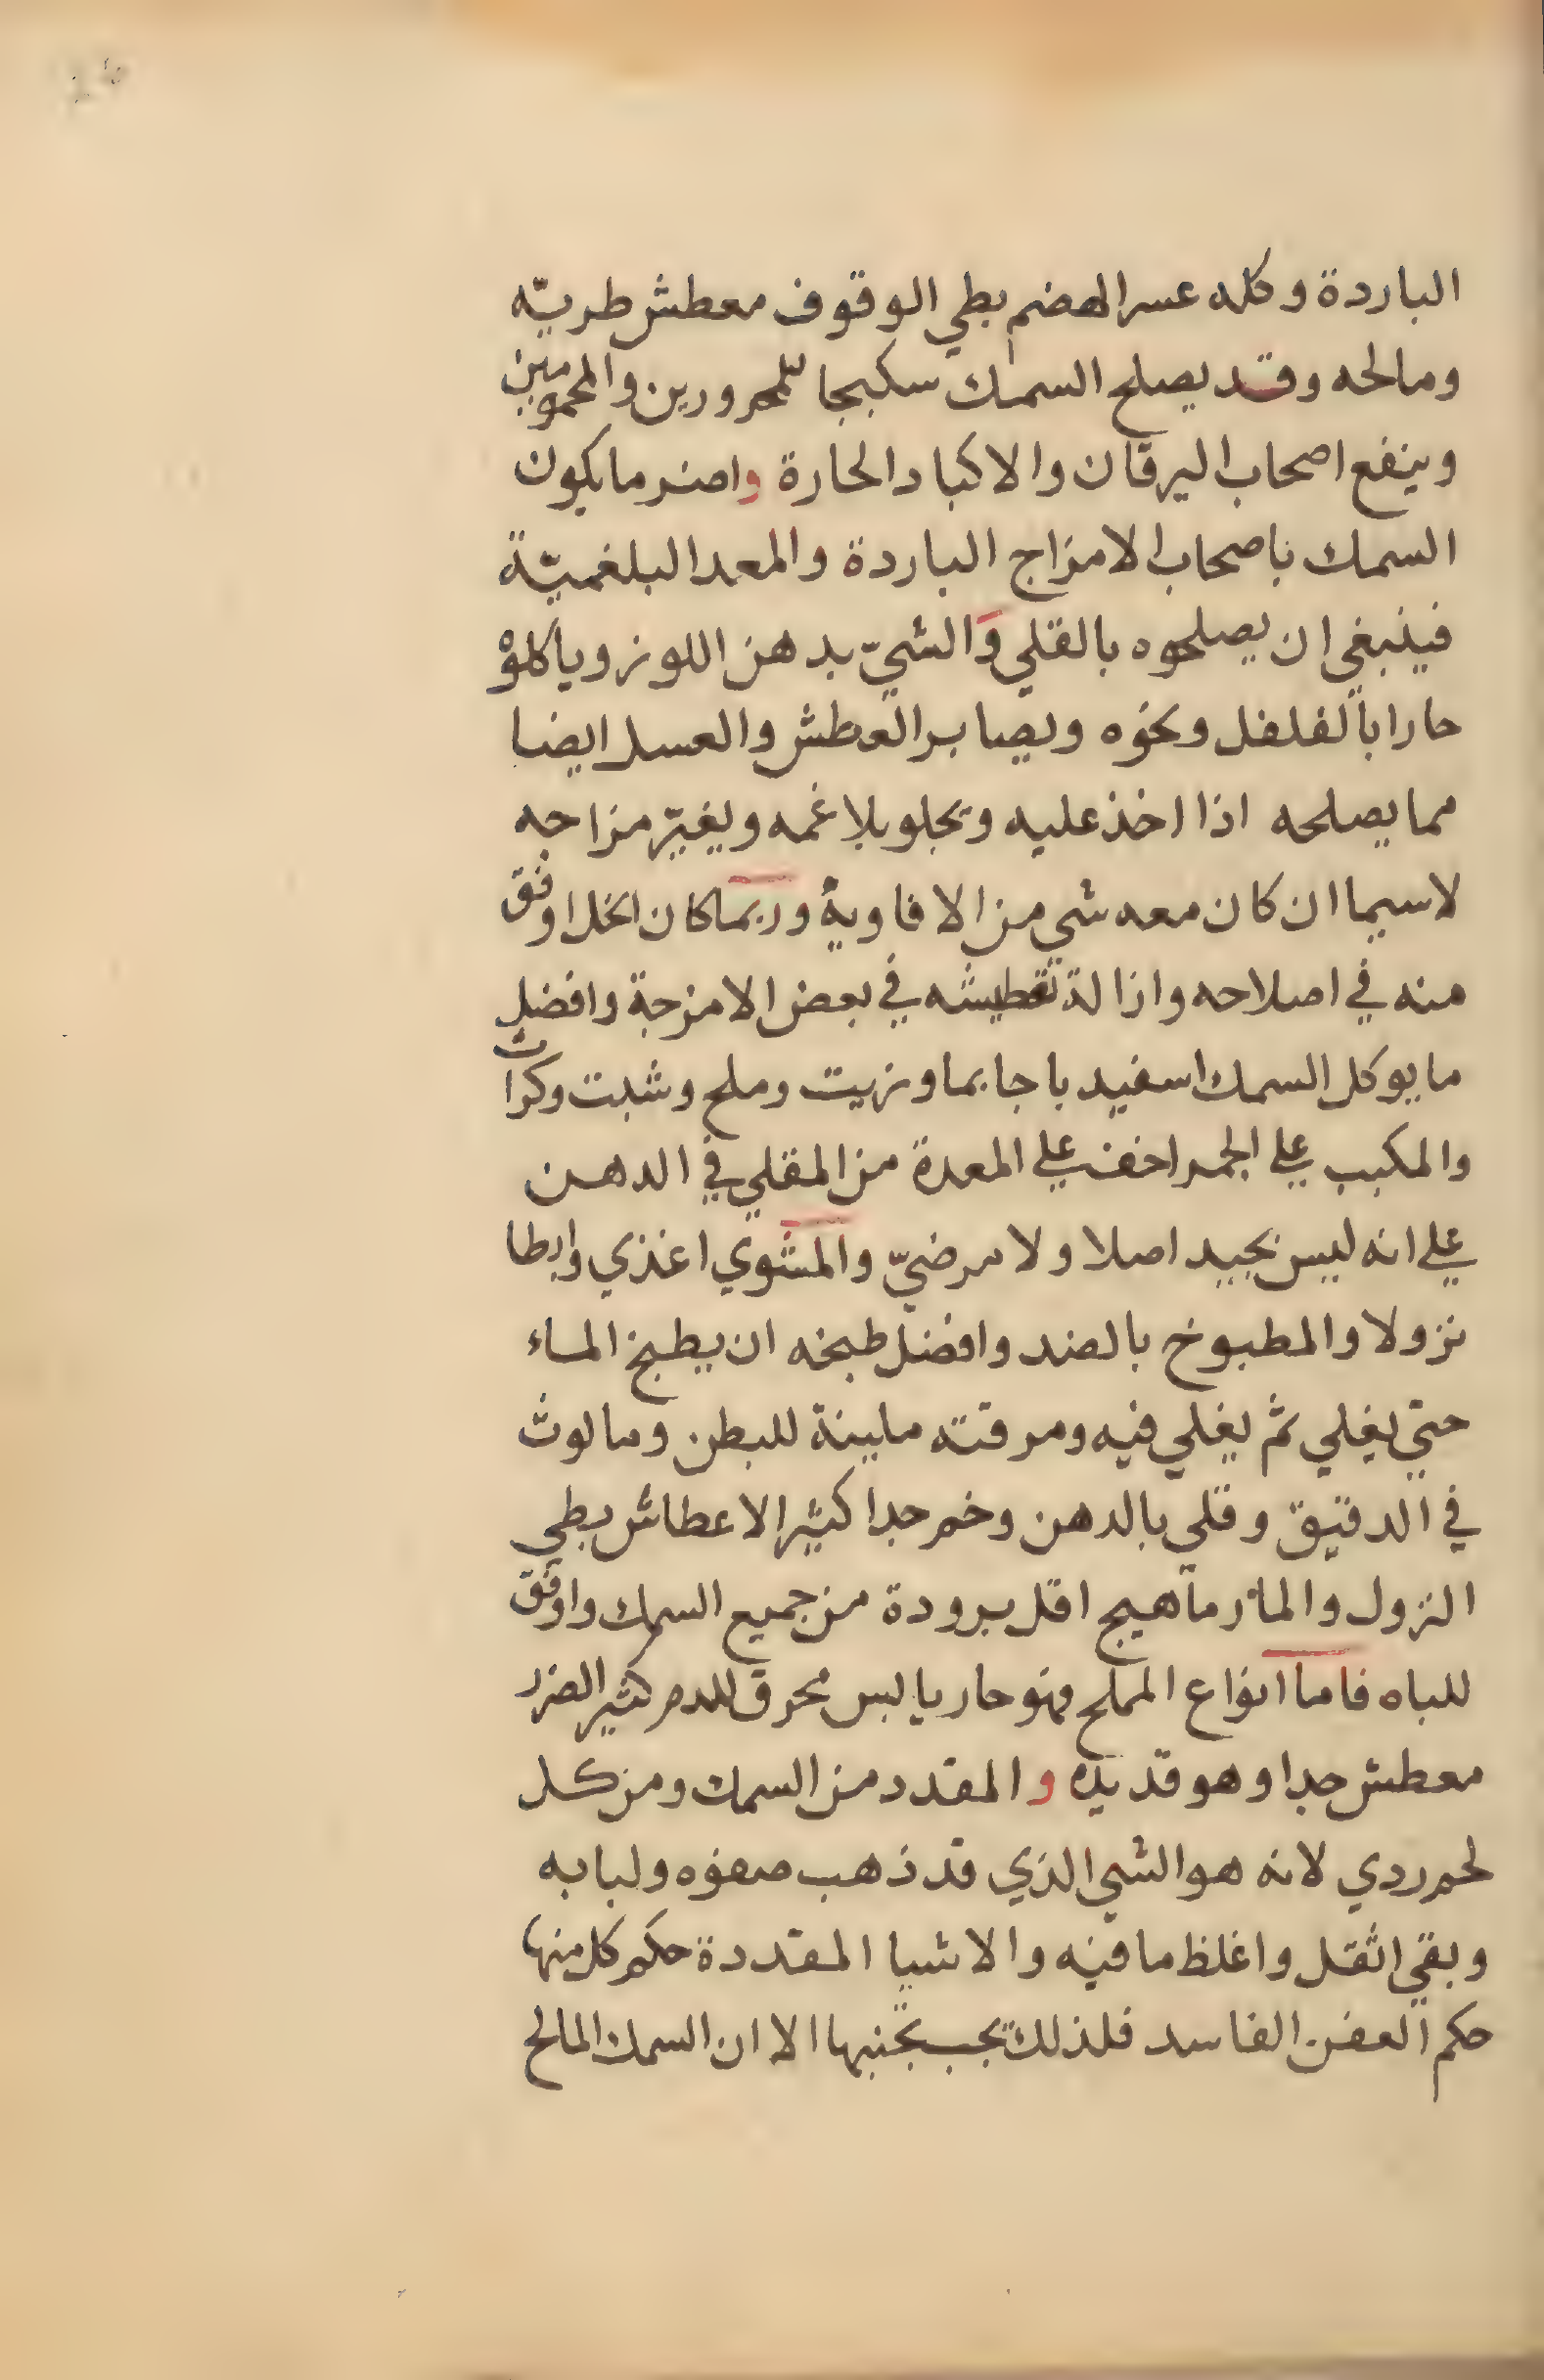 الباردة وكله عسر الهضم بطي الوقوف معطش طريّه
ومالحه وقد يصلح السمك سكبجا للمحرورين والمحمومين
وينفع اصحاب اليرقان والاكباد الحارة واضر ما يكون
السمك باصحاب الامزاج الباردة والمعد البلغميّة
فينبغي ان يصلحوه بالقلي وَالشيّ بدهن اللوز وياكلوْ
حارا بالفلفل ونحوه ويصابر العطش والعسل ايضا
مما يصلحه اذا اخذ عليه ويجلو بلاغمه ويغيّر مزاجه
لاسيما ان كان معه شي من الافاوية وربما كان الخل اوفق
منه في اصلاحه وازالة تعطيشه في بعض الامزجة وافضل
ما يوكل السمك اسفيد باجا بما وزيت وملح وشبت وكراث
والمكبب علي الجمر اخف علي المعدة من المقلي في الدهن
علي انه ليس بجيد اصلا ولا مرضيّ والمشوي اغذي وابطا
نزولا والمطبوخ بالضد وافضل طبخه ان يطبخ الماء
حتي يغلي ثم يغلي فيه ومرقته ملينة للبطن وما لوث
في الدقيق وقلي بالدهن وخم جدا كثير الاعطاش بطي
النزول والمار ماهيج اقل برودة من جميع السمك واوفق
للباه فاما انواع المملح فهو حار يابس محرق للدم كثير الضرر
معطش جدا وهو قديده والمقدد من السمك ومن كل
لحم ردي لانه هو الشي الذي قد ذهب صفوه ولبابه
وبقي اثقل واغلظ ما فيه والاشيا المقددة حكم كل منها
حكم العفن الفاسد فلذلك يجب تجنبها الا ان السمك المالح